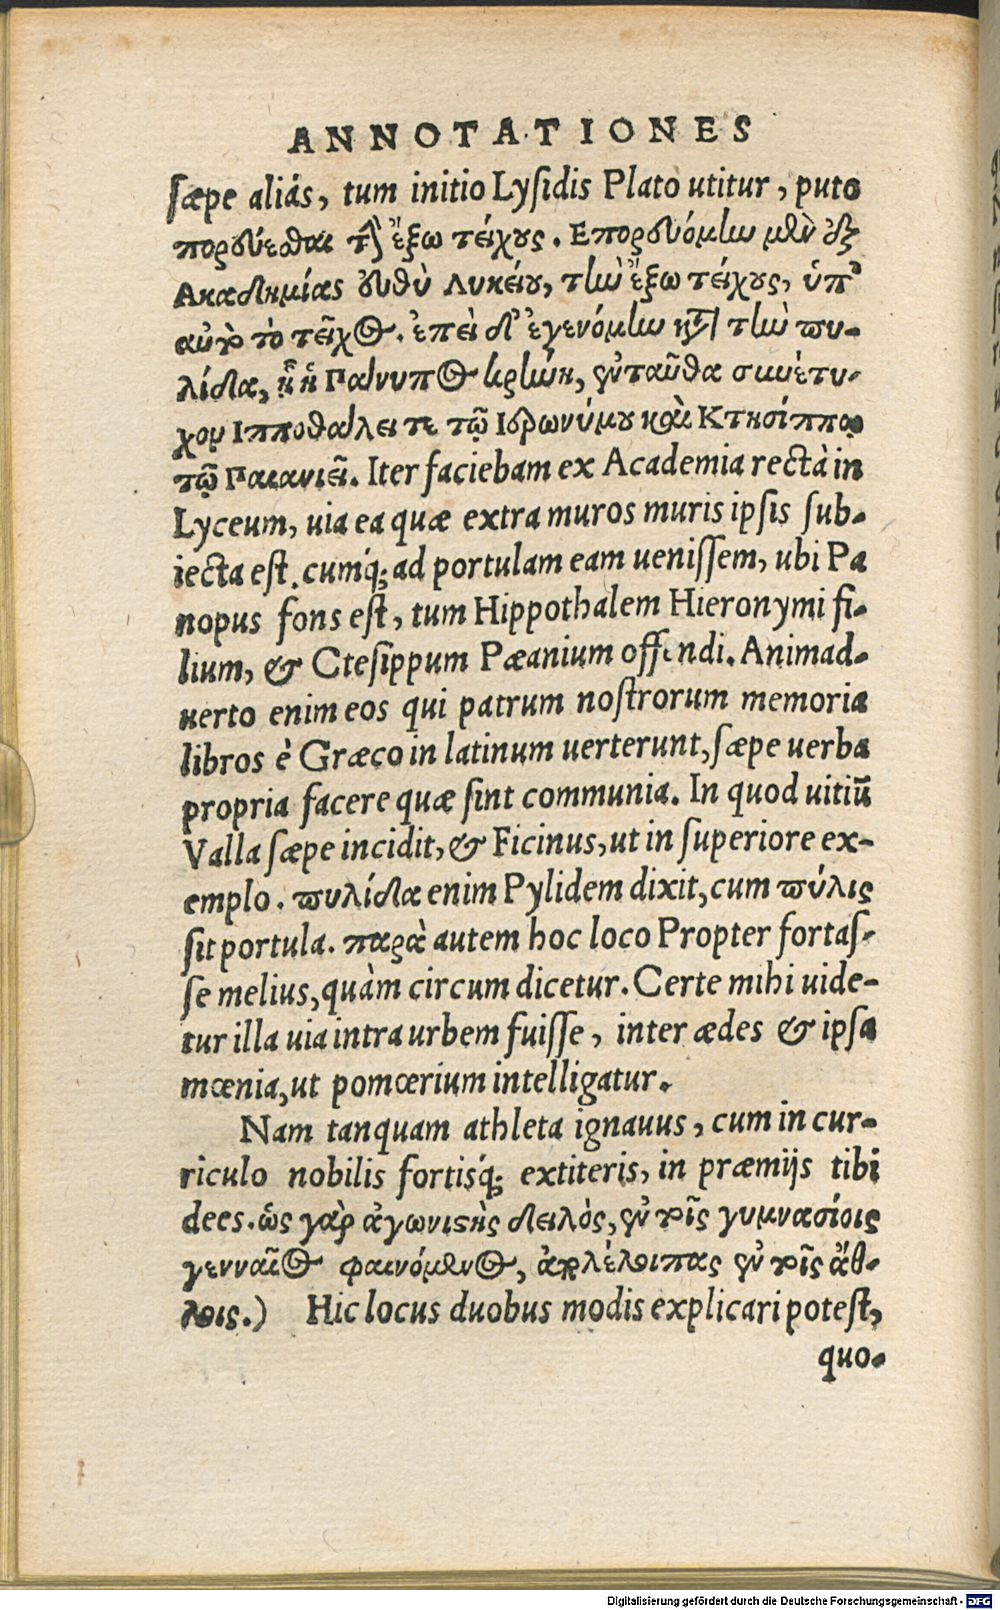 ANNOTATIONES
sæpe aliás, tum initio Lysidis Plato utitur, puto
πορεύεσθαι τὴν ἔξω τείχους. Επορευόμην μὲν ἐξ
Ακαδημίας ευθὺ Λυκείου, τὴν ἔξω τείχους, ὑπ'
αὐτὸ τὸ τεῖχος. ἐπεὶ δ' ἐγενόμην κατὰ τὴν πυ-
λίδα, ᾗ ἡ Πάνοπος κρήνη, ἐνταῦθα συνέτυ-
χον Ιπποθάλει τε τῷ Ιερωνύμου καὶ Κτησίππῳ
τῷ Παιανιεῖ. Iter faciebam ex Academia rectà in
Lyceum, uia ea quæ extra muros muris ipsis sub-
iecta est. cumq́; ad portulam eam uenissem, ubi Pa
nopus fons est, tum Hippothalem Hieronymi fi-
lium, & Ctesippum Pæanium offendi. Animad-
uerto enim eos qui patrum nostrorum memoria
libros è Græco in latinum uerterunt, sæpe uerba
propria facere quæ sint communia. In quod uitiū
Valla sæpe incidit, & Ficinus, ut in superiore ex-
emplo. πυλίδα enim Pylidem dixit, cum πύλις
sit portula. παρὰ autem hoc loco Propter fortas-
se melius, quàm circum dicetur. Certe mihi uide-
tur illa uia intra urbem fuisse, inter ædes & ipsa
mœnia, ut pomœrium intelligatur.
Nam tanquam athleta ignauus, cum in cur-
riculo nobilis fortisq́; extiteris, in præmijs tibi
dees. ὡς γὰρ ἀγωνιστὴς δειλὸς, ἐν τοῖς γυμνασίοις
γενναῖος φαινόμενος, ἀπολέλοιπας ἐν τοῖς ἄθ-
λοις.) Hic locus duobus modis explicari potest,
quo-
Digitalisierung gefördert durch die Deutsche Forschungsgemeinschaft - DFG